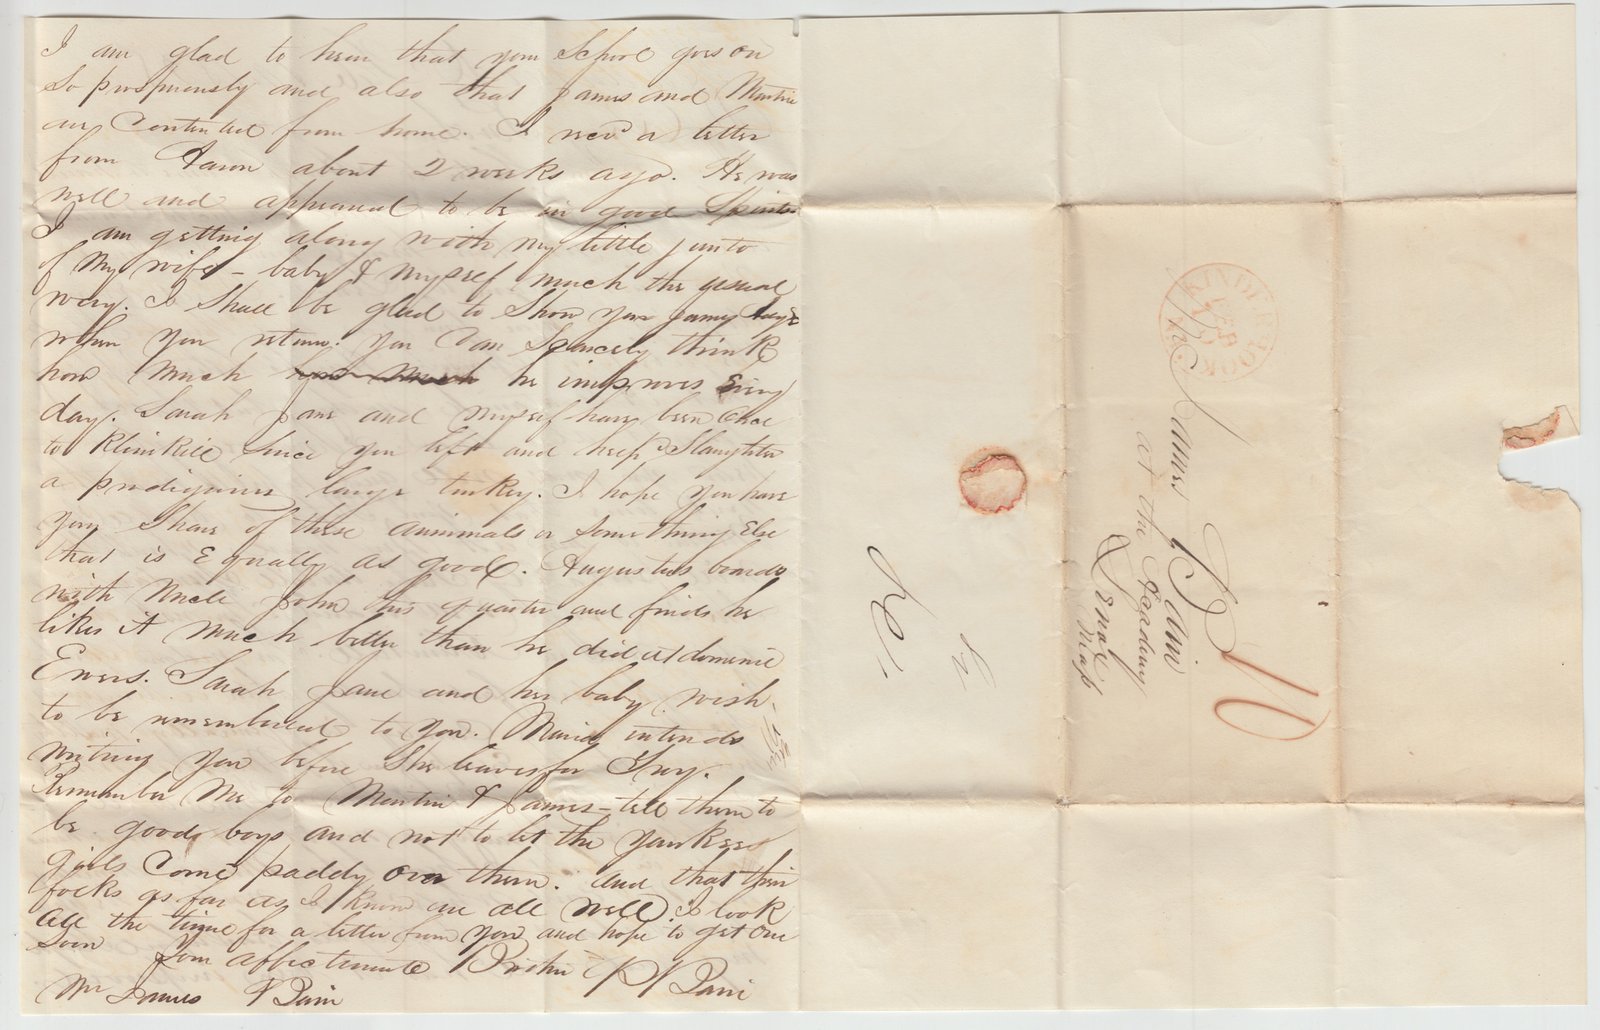 I am glad to hear that your School goes on
So prosperously and also that James and Martin
are Contented from home. I recd a letter
from Aaron about 2 weeks ago. He was
well and appeared to be in good Spirits
I am getting along with my little junto
of My wife - baby & myself much the usual
way. I Shall be glad to Show you
when you return. You Can Scarcely think
how much he improves Every
day. Sarah Jane and myself have been Once
to Klinekill Since you left and help Slaughter
a prodigious large turkey. I hope you have
your Share of these animals or Something Else
that is Equally as good. Augustus boards
with Uncle John this quarter and finds he
likes it much better than he did at domine
Sarah Jane and her baby wish
to be remembered to you. Maria intends
writing you before She leaves for Troy.
Remember Me to Martin & James - tell them to
be good boys and not to let the Yankees
girls Come paddy Over them. and that their
focks as far as I know are all well. I look
All the time for a letter from you and hope to get One
Soon Your affectionate Brother P Bain
Mr James Bain
KINDERHOOK
SEP
N.Y.
Mr James Bain
at the Academy
Lenox
Mass
10